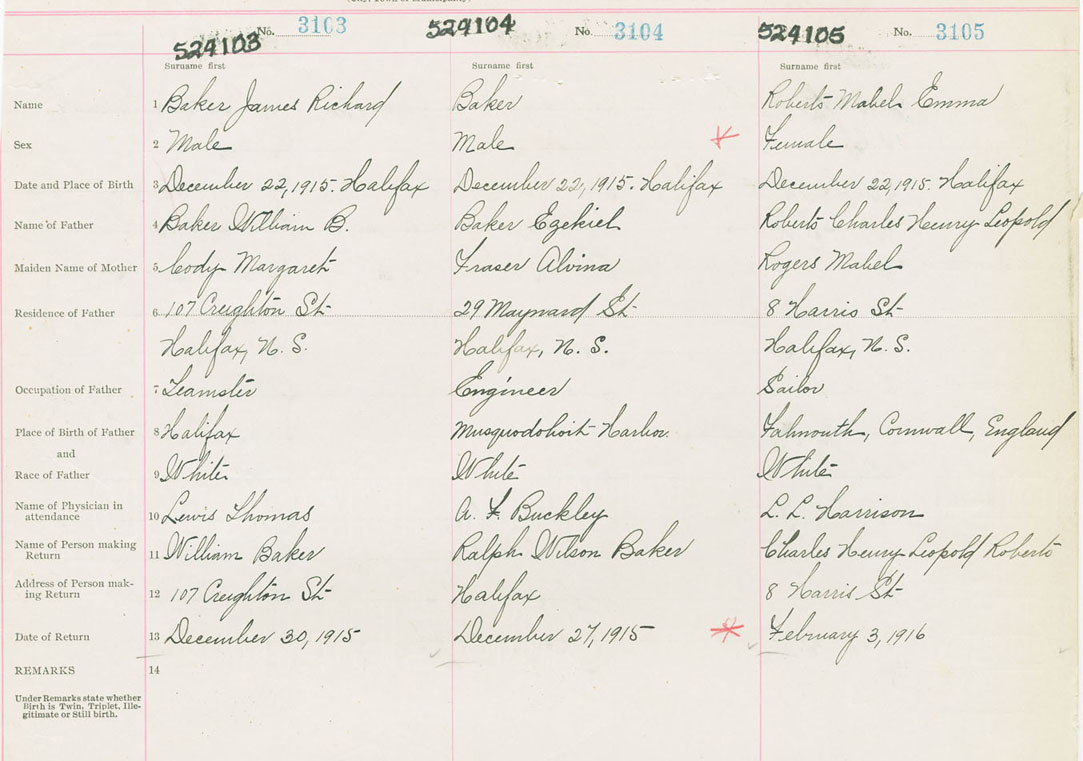 No. 3103 No. 3104 No. 3105
524103 524104 524105
Surname first Surname first Surname first
Name 1 Baker James Richard Baker Roberts Mabel Emma
Sex 2 Male Male Female
Date and Place of Birth 3 December 22, 1915. Halifax December 22, 1915. Halifax December 22, 1915. Halifax
Name of Father 4 Baker William B. Baker Ezekiel Roberts Charles Henry Leopold
Maiden Name of Mother 5 Cody Margaret Fraser Alvina Rogers Mabel
Residence of Father 6 107 Creighton St 29 Maynard St 8 Harris St
Halifax, N. S. Halifax, N. S. Halifax, N. S.
Occupation of Father 7 Teamster Engineer Sailor
Place of Birth of Father 8 Halifax Musquodoboit Harbor. Falmouth, Cornwall, England
and
Race of Father 9 White White White
Name of Physician in
attendance 10 Lewis Thomas A. F. Buckley L. L. Harrison
Name of Person making
Return 11 William Baker Ralph Wilson Baker Charles Henry Leopold Roberts
Address of Person mak-
ing Return 12 107 Creighton St Halifax 8 Harris St
Date of Return 13 December 30, 1915 December 27, 1915 February 3, 1916
REMARKS 14
Under Remarks state whether
Birth is Twin, Triplet, Ille-
gitimate or Still birth.